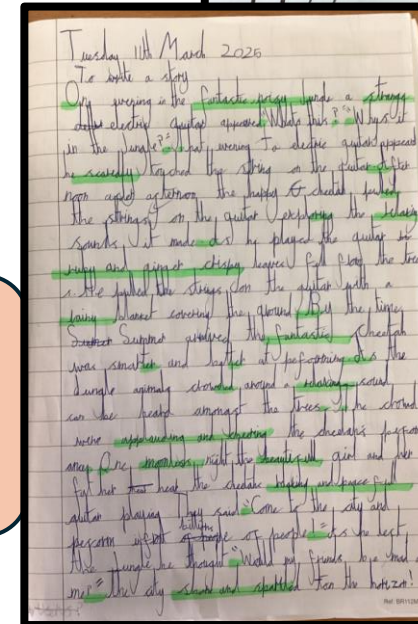 Tuesday 11th March 2025
To write a story
One evening in the fantastic jungle a strange
electric guitar appeared. "Whats this?" "Why is it
in the jungle?" That evening To a electric guitar appeard
he scaredly touched the string on the guitar After
noon after afternoon the happy cheetah
the strings on the guitar exploring the relaxing
sounds it made. As he played the guitar
ruby and ginger crispy leaves fell from the tree
s. He pulled the strings on the guitar with a
blanket covering the ground. By the time
Summer arrived the fantastic cheetah
was smarter and better at performing. As the
Jungle animals chowded around a relaxing sound
can be heard amongst the trees. The chowd
were applauding and cheeting the cheetah's perform
ance. One night the beautifull girl and her
father heat the cheetahs and peacefull
guitar playing they said "Come to the city and
perform infont of people!" As he left
the Jungle he thought "Would my friends
me?" the city and on the horizon!